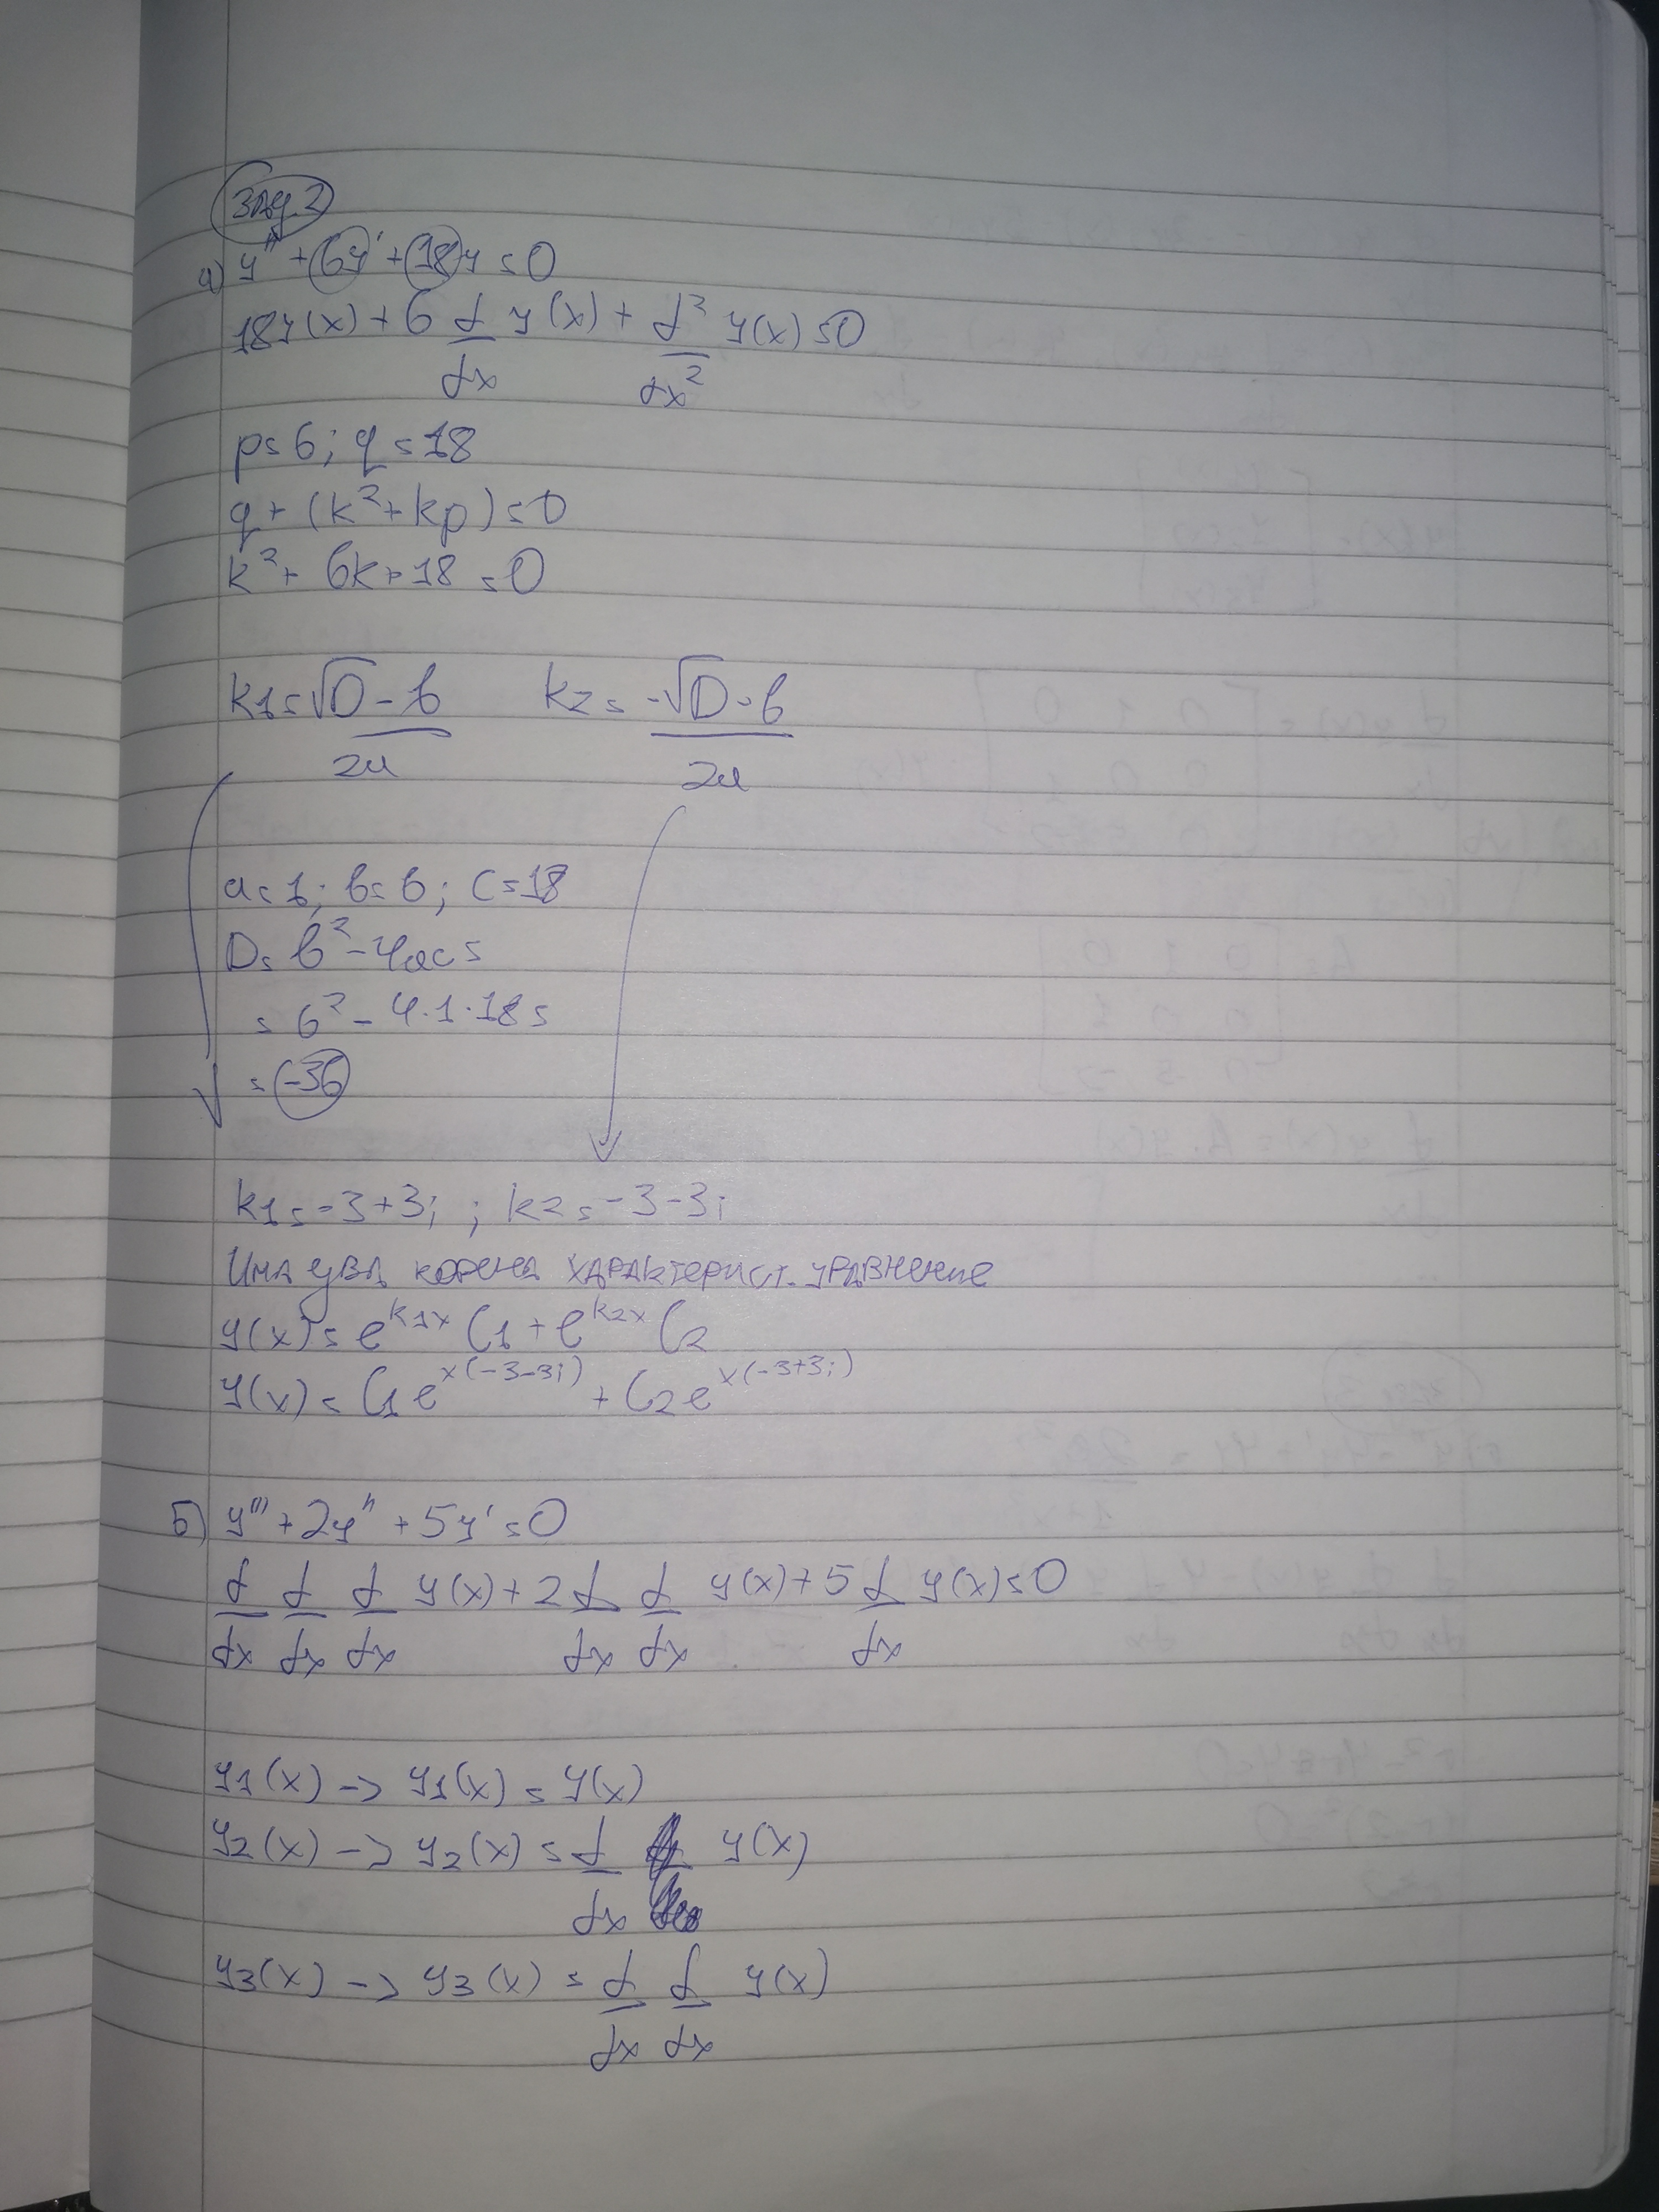 Зад. 2
а) y'' + 6y' + 18y = 0
18y(x) + 6 d/dx y(x) + d²/dx² y(x) = 0
p = 6; q = 18
q + (k² + kp) = 0
k² + 6k + 18 = 0
k1 = √D - b / 2a k2 = -√D - b / 2a
a = 1; b = 6; c = 18
D = b² - 4ac =
= 6² - 4.1.18 =
= -36
k1 = -3+3i ; k2 = -3-3i
Има два корена характерист. уравнение
y(x) = e^k1x C1 + e^k2x C2
y(x) = C1 e^x(-3-3i) + C2 e^x(-3+3i)
Б) y''' + 2y'' + 5y' = 0
d/dx d/dx d/dx y(x) + 2 d/dx d/dx y(x) + 5 d/dx y(x) = 0
y1(x) -> y1(x) = y(x)
y2(x) -> y2(x) = d/dx y(x)
y3(x) -> y3(x) = d/dx d/dx y(x)